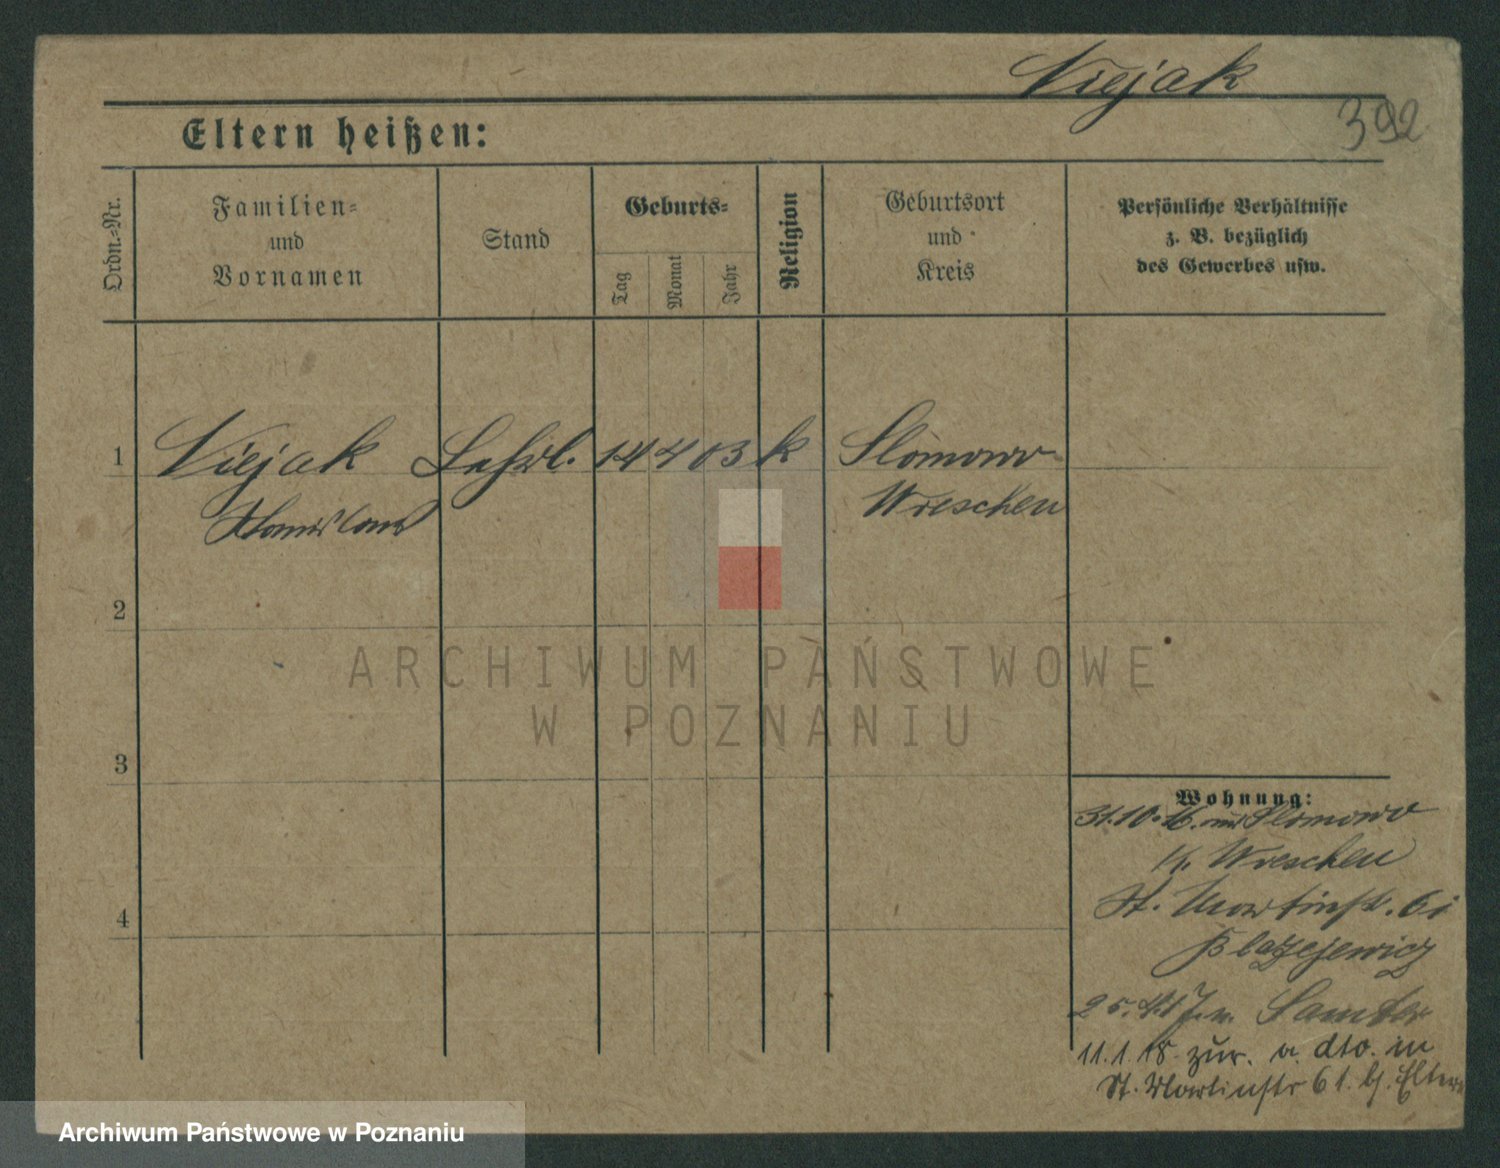 Niejak
392
Eltern heißen:
Ordn.-Nr.
Familien-
und
Vornamen
Stand
Geburts-
Tag
Monat
Jahr
Religion
Geburtsort
und
Kreis
Persönliche Verhältnisse
z. B. bezüglich
des Gewerbes usw.
1
Niejak Lehrl. 14 4 03 k Slomowo
Stanislaus Wreschen
2
ARCHIWUM PAŃSTWOWE
W POZNANIU
3
Wohnung:
31.10.16. Slomowo
Wreschen
St. Martinstr. 61
Blazejewicz
25. Samter
11.1.18 zur. a. dto. in
St. Martinstr 61. bj. Eltern
4
Archiwum Państwowe w Poznaniu